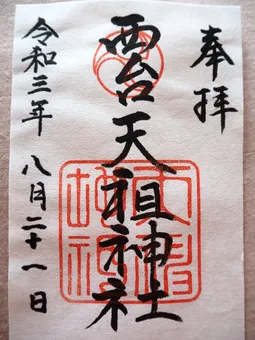 奉拝
西台天祖神社
令和三年 八月二十一日